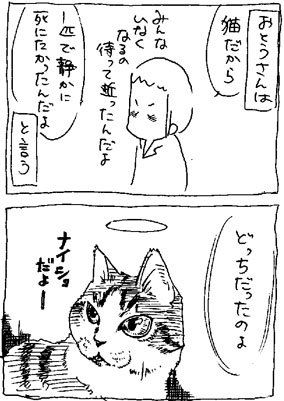 おとうさんは
猫だから
みんな
いなく
なるの
待って逝ったんだよ
一匹で静かに
死にたかったんだよ
と言う
どっちだったのよ
ナイショ
だよー